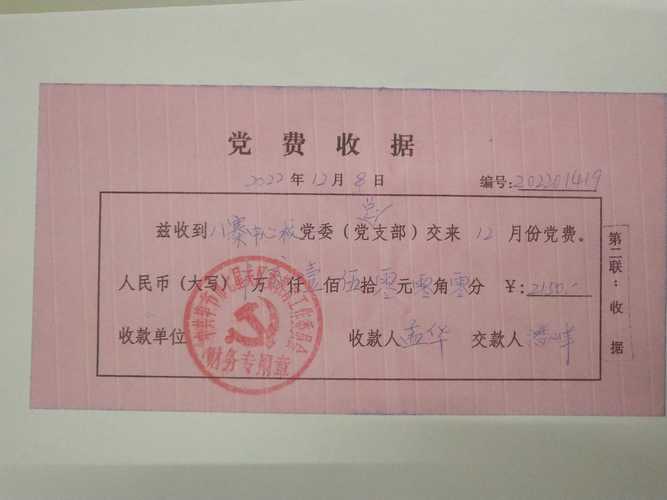 党费收据
2022年12月8日 编号:202201419
总
兹收到八寨中心校党委(党支部)交来12月份党费。
人民币(大写) 万 仟壹佰伍拾零元零角零分 ¥:2150.-
收款单位 收款人孟华 交款人
财务专用章
第二联:收据